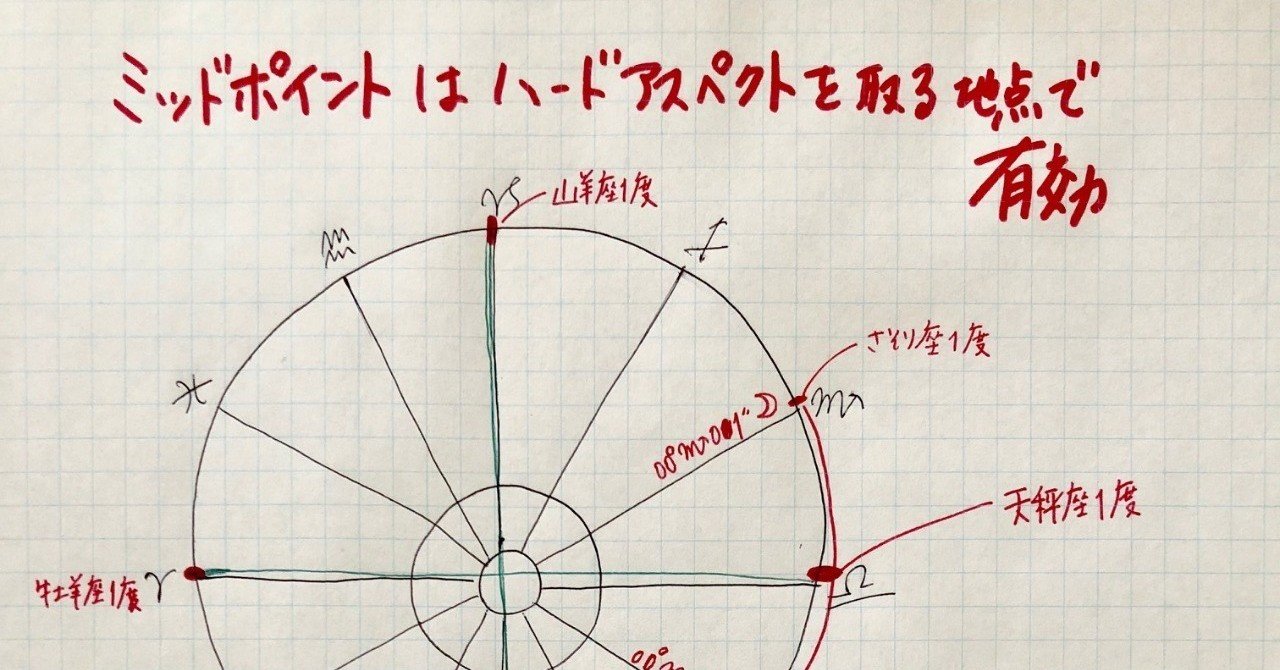 ミッドポイントはハードアスペクトを取る地点で
有効
♑ 山羊座1度
♒
♐
さそり座1度
♓
♏
天秤座1度
♎
牡羊座1度 ♈